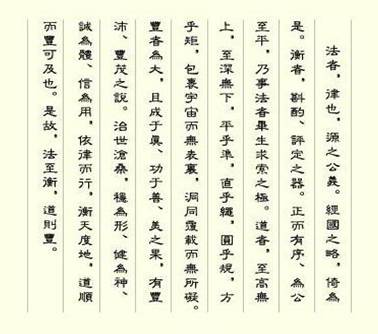 法者，律也，源之公義。經國之略，倚為
是。衡者，斟酌、評定之器。正而有序、為公
至平，乃事法者畢生求索之極。道者，至高無
上，至深無下，平乎準，直乎繩，圓乎規，方
乎矩，包裹宇宙而無表裏，洞同覆載而無所礙。
豐者為大，且成于真、功于善、美之果，有豐
沛、豐茂之說。治世滄桑，穩為形、健為神、
誠為體、信為用，依律而行，衡天度地，道順
而豐可及也。是故，法至衡，道則豐。